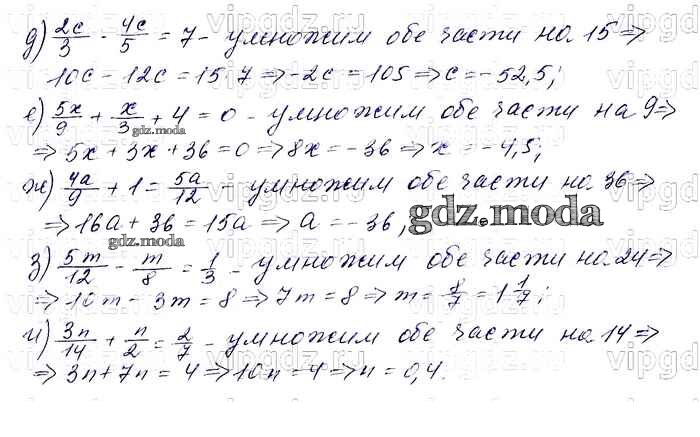 д) 2c/3 - 4c/5 = 7 - умножим обе части на 15 ⇒
10c - 12c = 15·7 ⇒ -2c = 105 ⇒ c = -52,5;
е) 5x/9 + x/3 + 4 = 0 - умножим обе части на 9 ⇒
gdz.moda
⇒ 5x + 3x + 36 = 0 ⇒ 8x = -36 ⇒ x = -4,5;
ж) 4a/9 + 1 = 5a/12 - умножим обе части на 36 ⇒
⇒ 16a + 36 = 15a ⇒ a = -36,
gdz.moda
gdz.moda
з) 5m/12 - m/8 = 1/3 - умножим обе части на 24 ⇒
⇒ 10m - 3m = 8 ⇒ 7m = 8 ⇒ m = 8/7 = 1 1/7;
и) 3n/14 + n/2 = 2/7 - умножим обе части на 14 ⇒
⇒ 3n + 7n = 4 ⇒ 10n = 4 ⇒ n = 0,4.